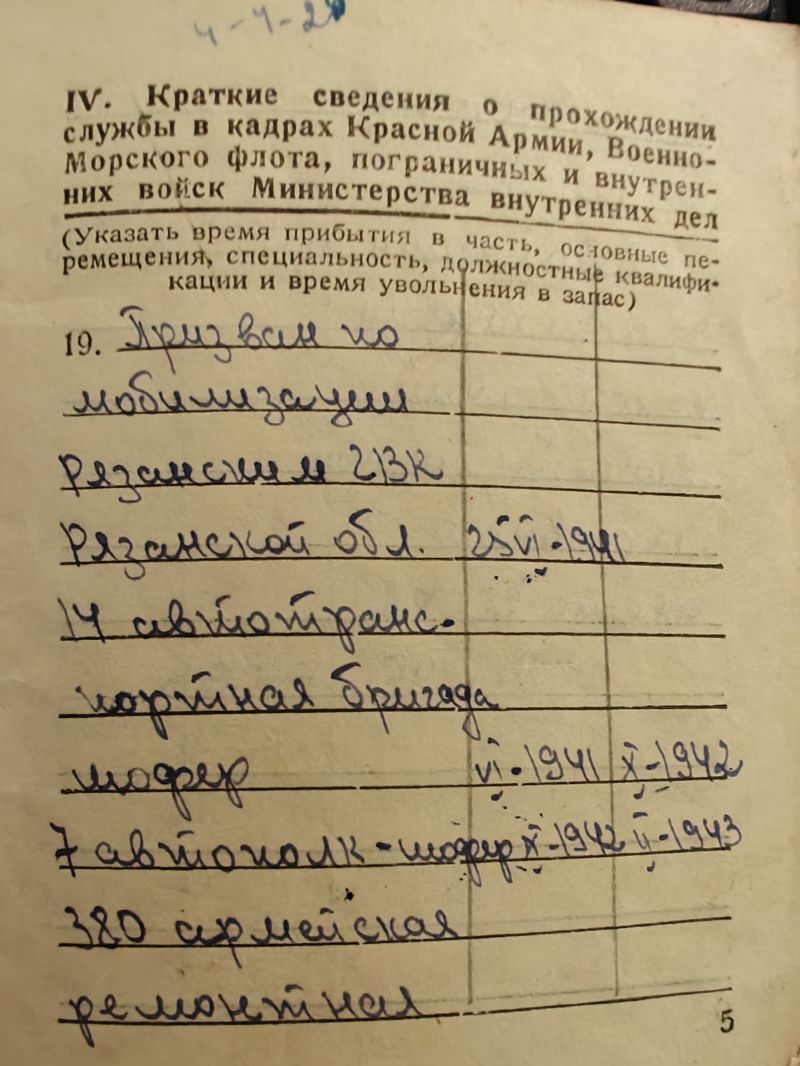 4-4-28
IV. Краткие сведения о прохождении
службы в кадрах Красной Армии, Военно-
Морского флота, пограничных и внутрен-
них войск Министерства внутренних дел
(Указать время прибытия в часть, основные пе-
ремещения, специальность, должностные квалифи-
кации и время увольнения в запас)
19. Призван по
мобилизации
Рязанским ГВК
Рязанской обл. 25 VI-1941
14 автотранс-
портная бригада
шофер VI-1941 X-1942
7 автополк-шофер X-1942 II-1943
380 армейская
ремонтная
5